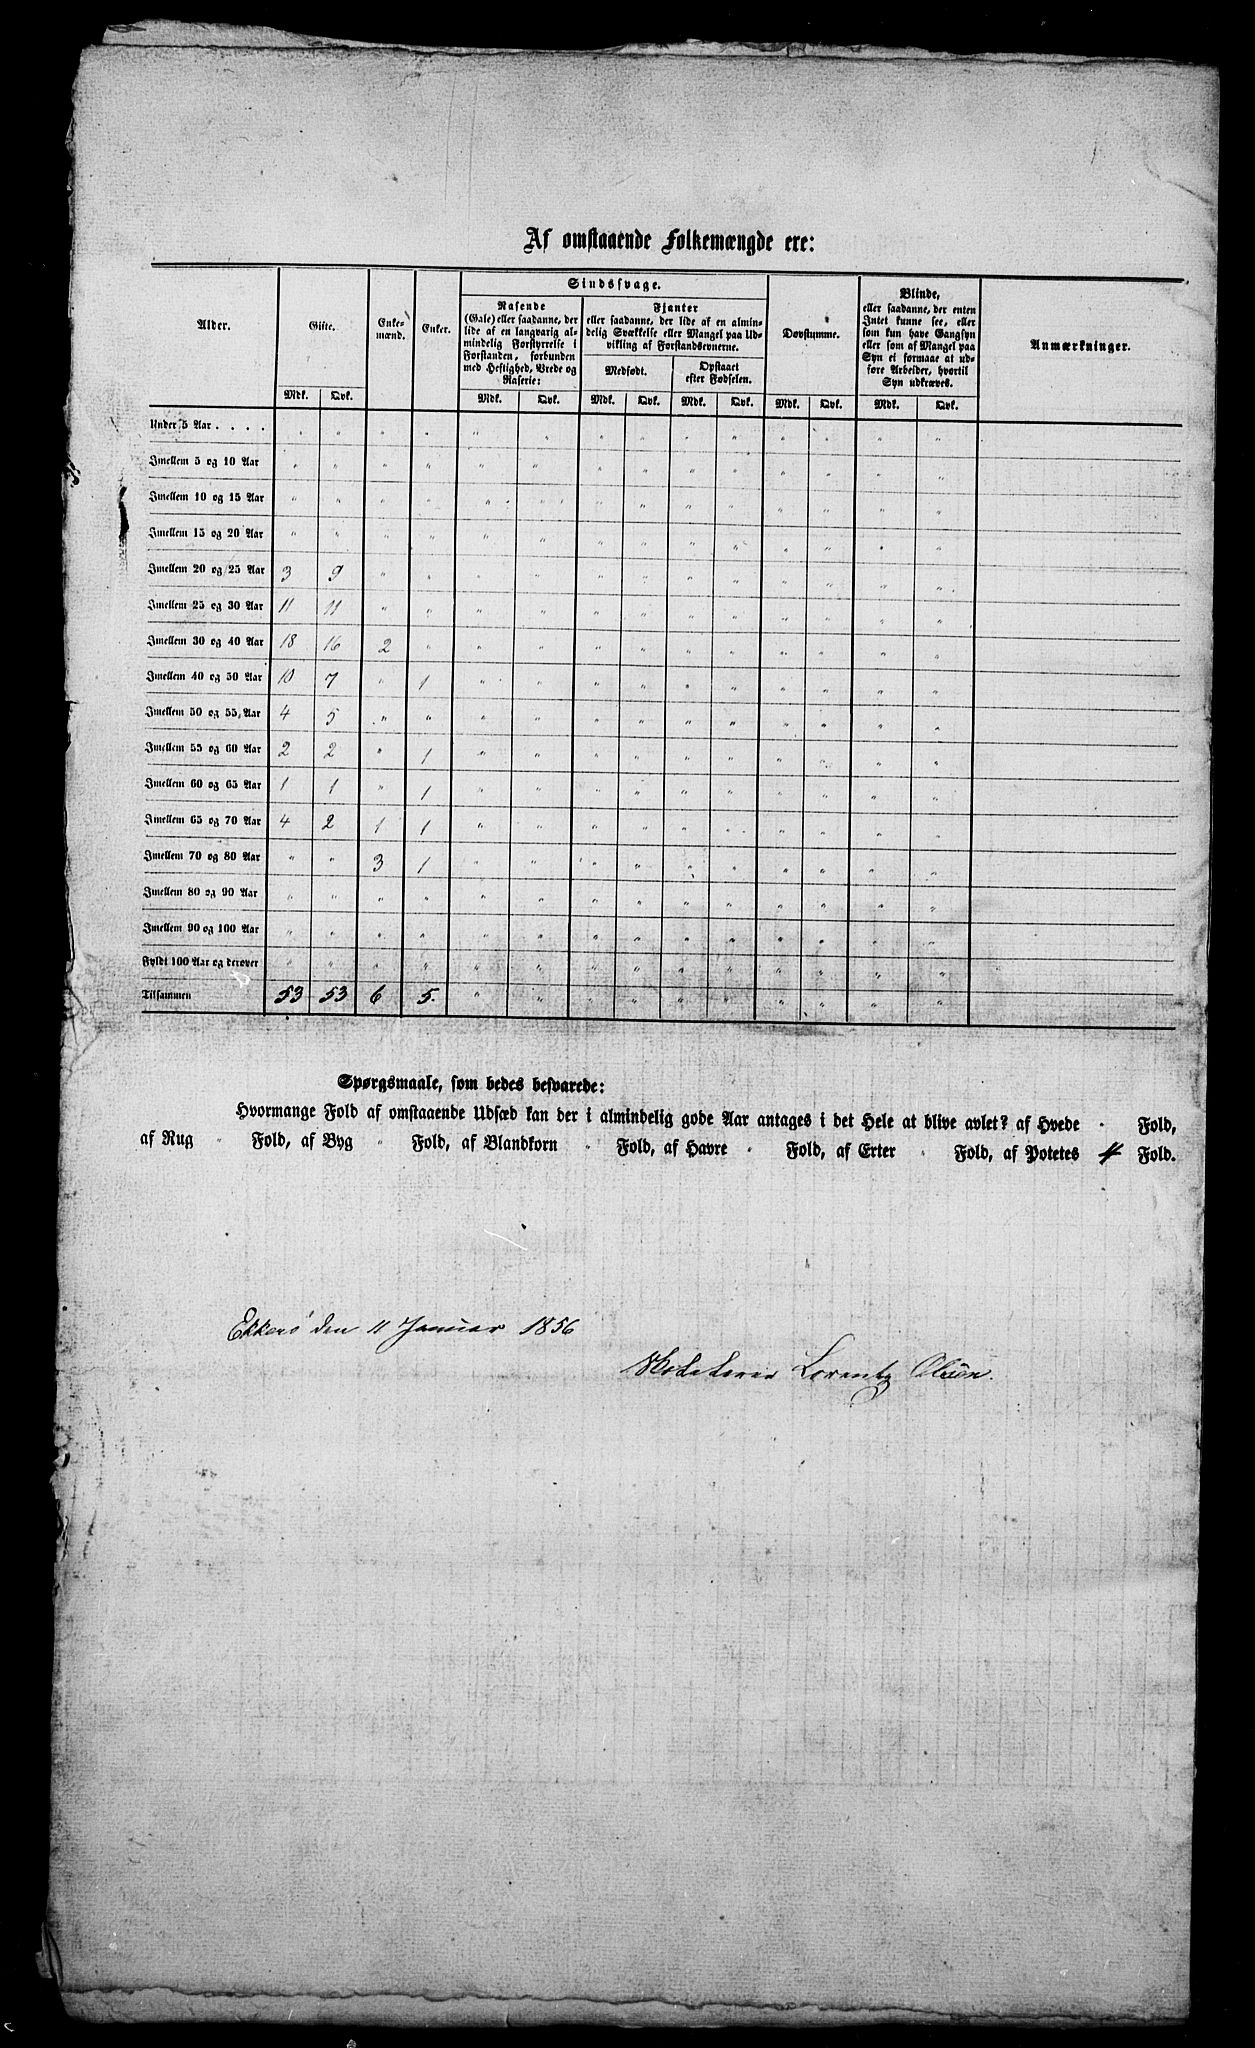 Af omstaaende Folkemængde ere:
Alder.
Gifte.
Enke-
mænd.
Enker.
Sindssvage.
Rasende
(Gale) eller saadanne, der
lide af en langvarig al-
mindelig Forstyrrelse i
Forstanden, forbunden
med Heftighed, Vrede og
Raserie:
Fjanter
eller saadanne, der lide af en almin-
delig Svækkelse eller Mangel paa Ud-
vikling af Forstandsevnerne.
Medfødt.
Opstaaet
efter Fødselen.
Døvstumme.
Blinde,
eller saadanne, der enten
Intet kunne see, eller
som kun have Gangsyn
eller som af Mangel paa
Syn ei formaae at ud-
føre Arbeider, hvortil
Syn udkræves.
Anmærkninger.
Mdk. Qvk. Mdk. Qvk. Mdk. Qvk. Mdk. Qvk. Mdk. Qvk. Mdk. Qvk.
Under 5 Aar . . . . " " " " " " " " " " " " " "
Imellem 5 og 10 Aar " " " " " " " " " " " " " "
Imellem 10 og 15 Aar " " " " " " " " " " " " " "
Imellem 15 og 20 Aar " " " " " " " " " " " " " "
Imellem 20 og 25 Aar 3 9 " " " " " " " " " " " "
Imellem 25 og 30 Aar 11 11 " " " " " " " " " " " "
Imellem 30 og 40 Aar 18 16 2 " " " " " " " " " " "
Imellem 40 og 50 Aar 10 7 " 1 " " " " " " " " " "
Imellem 50 og 55 Aar 4 5 " " " " " " " " " " " "
Imellem 55 og 60 Aar 2 2 " 1 " " " " " " " " " "
Imellem 60 og 65 Aar 1 1 " 1 " " " " " " " " " "
Imellem 65 og 70 Aar 4 2 1 1 " " " " " " " " " "
Imellem 70 og 80 Aar " " 3 1 " " " " " " " " " "
Imellem 80 og 90 Aar " " " " " " " " " " " " " "
Imellem 90 og 100 Aar " " " " " " " " " " " " " "
Fyldt 100 Aar og derover " " " " " " " " " " " " " "
Tilsammen 53 53 6 5. " " " " " " " " " "
Spørgsmaale, som bedes besvarede:
Hvormange Fold af omstaaende Udsæd kan der i almindelig gode Aar antages i det Hele at blive avlet? af Hvede " Fold,
af Rug " Fold, af Byg " Fold, af Blandkorn " Fold, af Havre " Fold, af Erter " Fold, af Potetes 4 Fold.
Ekkerö den 11 Januar 1856
Lorentz Olsen.